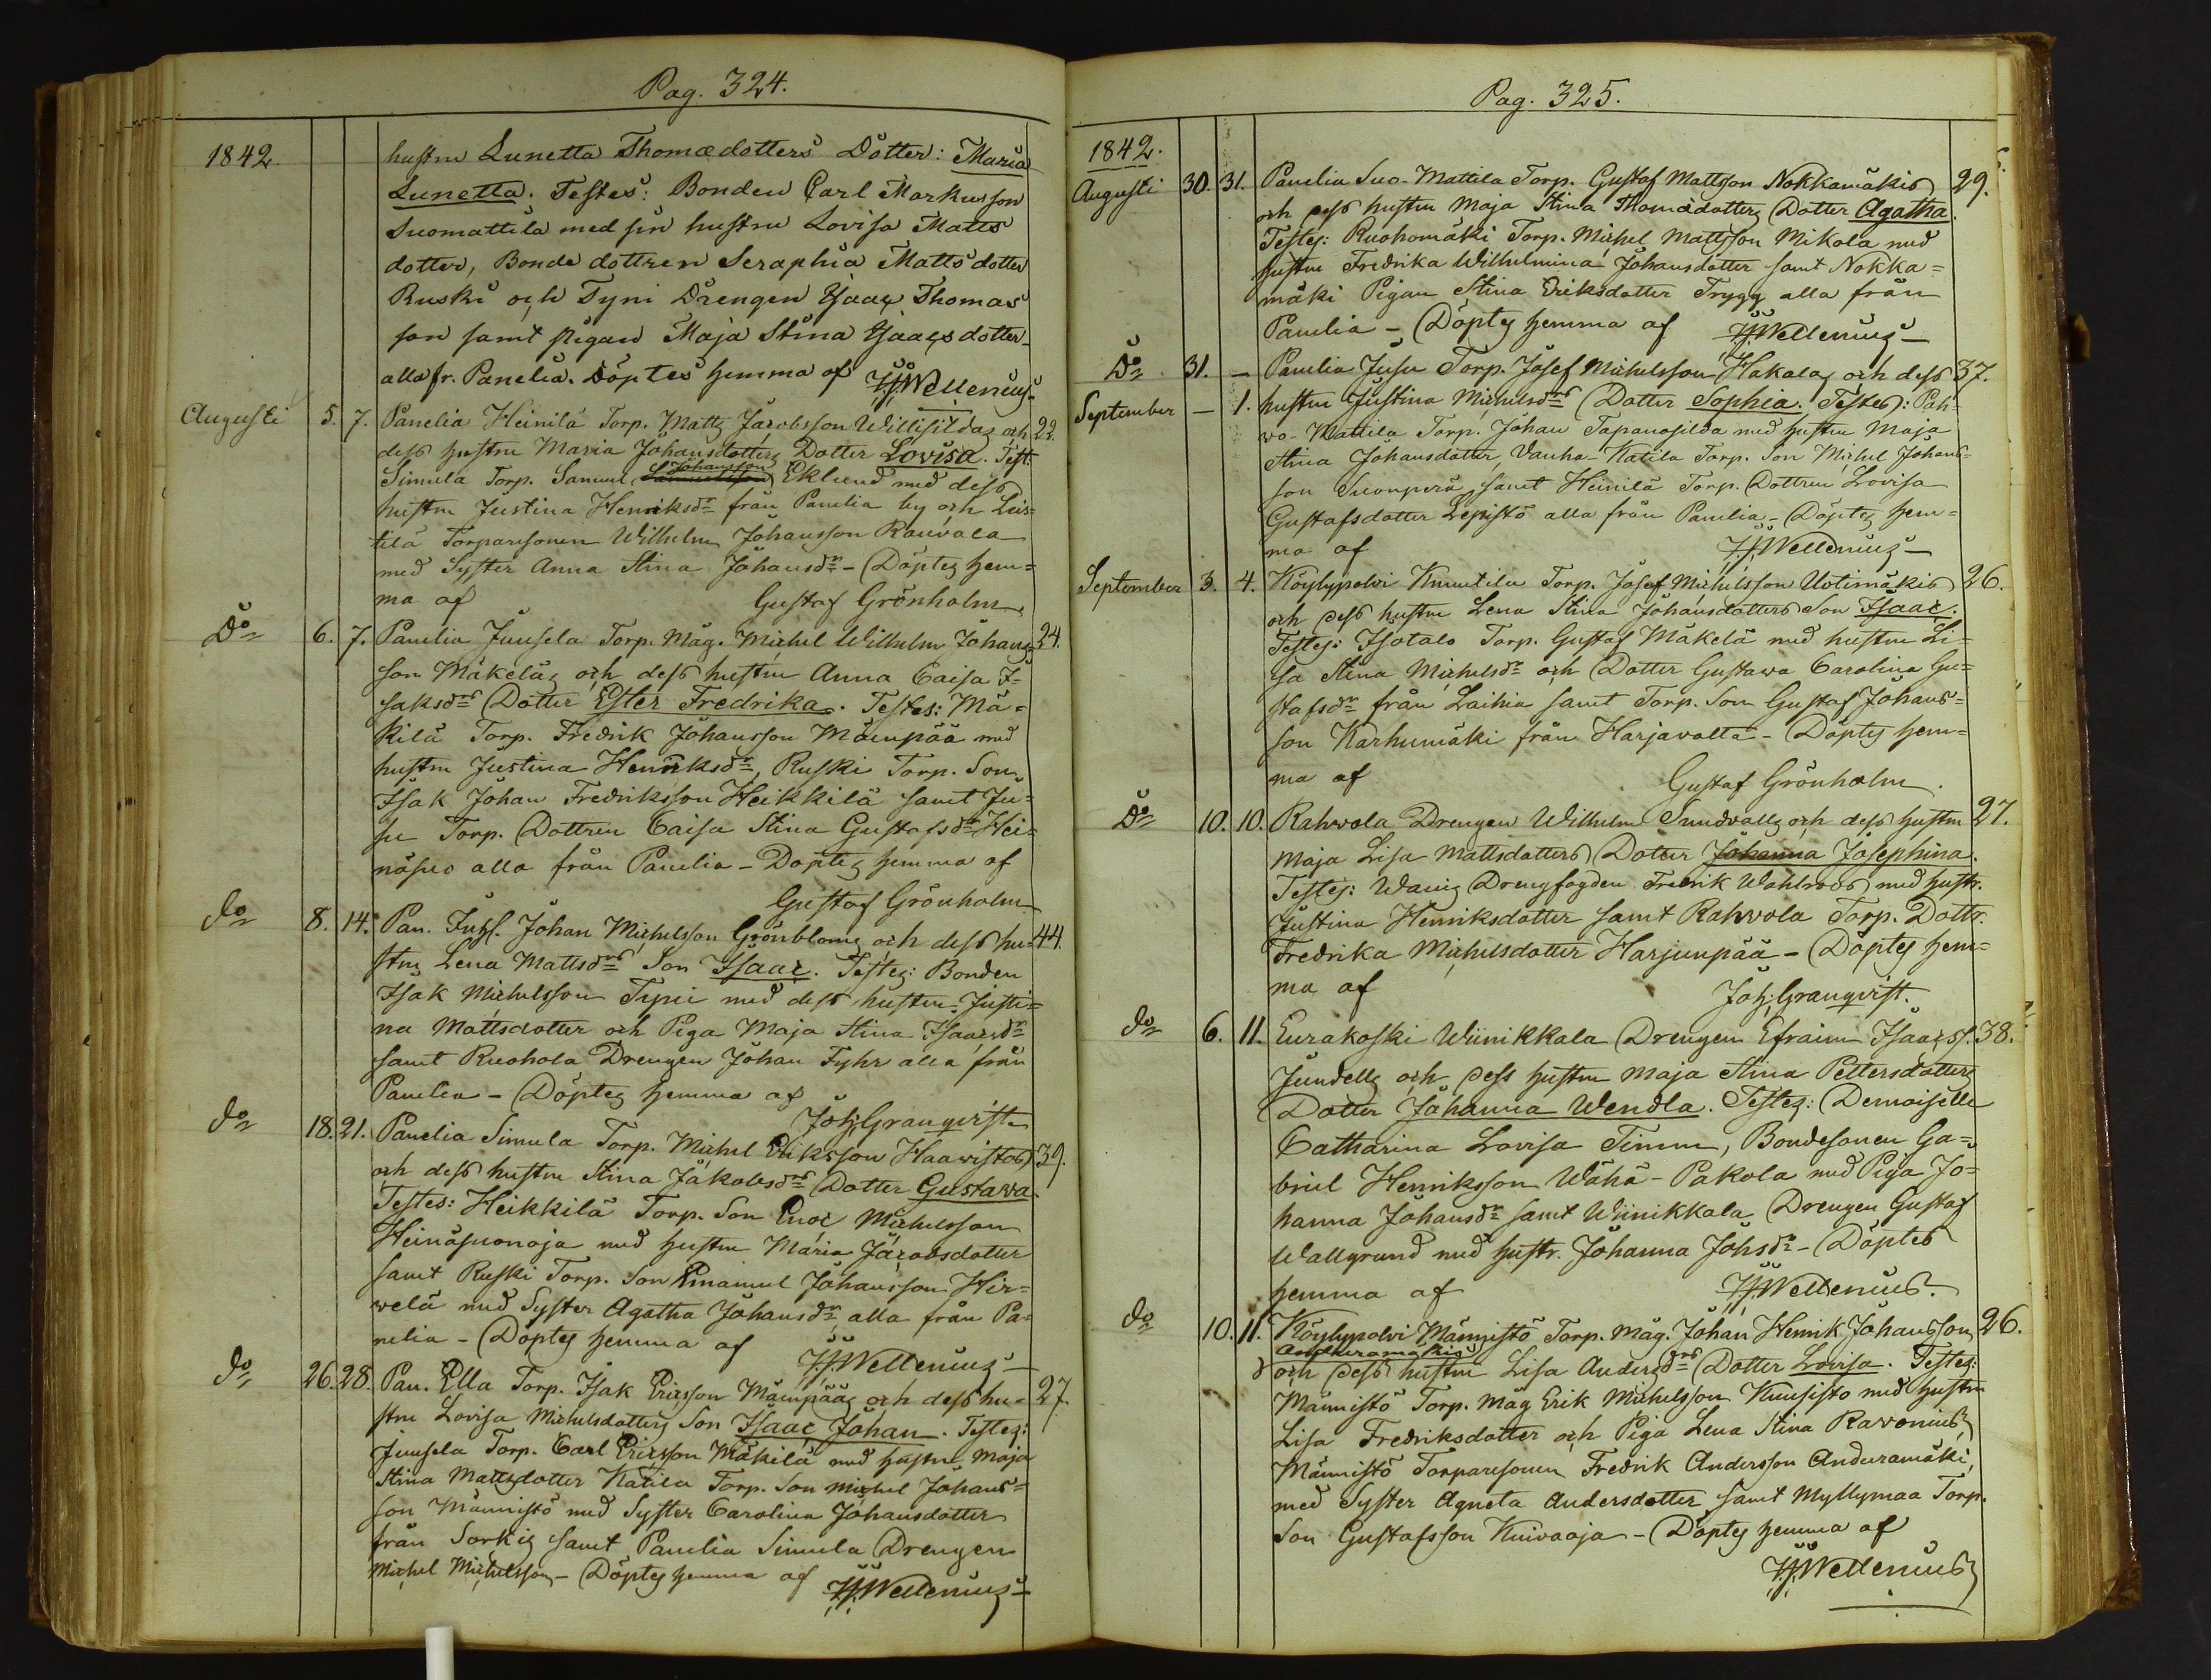 Pag. 324.
1842. hustru Lunetta Thomædotters Dotter: Maria
Lunetta. Testes: Bonden Carl Markusson
Suomattila med sin hustru Lovisa Matts
dotter, Bonde dottren Seraphia Matts dotter
Ruski och Tyni Drengen Isaac Thomas
son samt pigan Maja Stina Isaacs dotter
alla fr. Panelia. Döptes hemma af Wellenius
Augusti 5. 7. Panelia Heinilä Torp. Matts Jacobsson Willisildas och 22.
dess hustru Maria Johansdotters Dotter Lovisa. Test.
Simula Torp. Samuel Johansson Eklund med dess
hustru Justina Henriksdr från Panelia by och Leis=
tilä Torparesonen Wilhelm Johansson Rauvala
med Syster Anna Stina Johansdr - Döptes hem=
ma af Gustaf Grönholm
Do 6. 7. Panelia Juusela Torp. Måg. Michel Wilhelm Johans= 24.
son Mäkeläs och dess hustru Anna Caisa I=
saksdrs Dotter Ester Fredrika. Testes: Mä=
kilä Torp. Fredrik Johansson Mäenpää med
hustru Justina Henriksdr, Ruski Torp. Son
Isak Johan Fredriksson Heikkilä samt Ju=
su Torp. Dottren Caisa Stina Gustafsdr Hei=
näsuo alla från Panelia - Döptes hemma af
Gustaf Grönholm
do 8. 14. Pan. Inhs. Johan Michelsson Grönbloms och dess hu= 44.
stru Lena Mattsdrs Son Isaac. Testes: Bonden
Isak Michelsson Tyni med dess hustru Justi=
na Mattsdotter och Piga Maja Stina Isaacsdr
samt Ruohola Drengen Johan Fyhr alla från
Panelia - Döptes hemma af
Joh. Granqvist
do 18. 21. Panelia Simula Torp. Michel Eriksson Haavistos 39.
och dess hustru Stina Jakobsdrs Dotter Gustava
Testes: Heikkilä Torp. Son Enoc Michelsson
Heinäsuonoja med hustru Maria Jacobsdotter
samt Ruski Torp. Son Emanuel Johansson Hir=
welä med Syster Agatha Johansdr alla från Pa=
nelia - Döptes hemma af Wellenius
do 26. 28. Pan. Ella Torp. Isak Ericsson Mäenpääs och dess hu= 27.
stru Lovisa Michelsdotters Son Isaac Johan. Testes:
Juusela Torp. Carl Ericsson Mäkilä med hustru Maja
Stina Mattsdotter Katila Torp. Son Michel Johans=
son Männistö med Syster Carolina Johansdotter
från Sorkis samt Panelia Simula Drengen
Michel Michelsson - Döptes hemma af Wellenius
Pag. 325.
1842.
Augusti 30. 31. Panelia Suo-Mattila Torp. Gustaf Mattsson Nokkamäkis 29.
och dess hustru Maja Stina Thomædotters Dotter Agatha.
Testes: Ruohomäki Torp. Michel Mattsson Mikola med
hustru Fredrika Wilhelmina Johansdotter samt Nokka=
mäki Pigan Stina Eriksdotter Trygg alla från
Panelia - Döptes hemma af Wellenius
Do 31. - Panelia Jusu Torp. Josef Michelsson Hakalas och dess 37.
September - 1. hustru Justina Michelsdrs Dotter Sophia. Testes: Pah=
wo-Mattila Torp. Johan Tapanosilda med hustru Maja
Stina Johansdotter, Vanha-Katila Torp. Son Michel Johans=
son Suonperä samt Heinilä Torp. Dottren Lovisa
Gustafsdotter Lepistö alla från Panelia - Döptes hem=
ma af Wellenius
September 3. 4. Köylypolvi Knuutila Torp. Josef Michelsson Uotimäkis 26.
och dess hustru Lena Stina Johansdotters Son Isaac.
Testes: Isotalo Torp. Gustaf Mäkelä med hustru Li=
sa Stina Michelsdr och Dotter Gustawa Carolina Gu=
stafsdr från Laihia samt Torp. Son Gustaf Johans=
son Karhumäki från Harjavalta - Döptes hem=
ma af Gustaf Grönholm.
Do 10. 10. Rahvola Drengen Wilhelm Sundvalls och dess hustru 27.
Maja Lisa Mattsdotters Dotter Johanna Josephina.
Testes: Wanis Drengfogden Fredrik Wahlroos med hustr.
Justina Henriksdotter samt Rahvola Torp. Dottr.
Fredrika Michelsdotter Harjunpää - Döptes hem=
ma af Joh. Granqvist.
do 6. 11. Eurakoski Wiinikkala Drengen Efraim Isaacss. 38.
Jundells och dess hustru Maja Stina Pettersdotters
Dotter Johanna Wendla. Testes: Demoiselle
Catharina Lovisa Timm, Bondesonen Ga=
briel Henriksson Wähä-Pakola med Piga Jo=
hanna Johansdr samt Wiinikkala Drengen Gustaf
Wallgrund med hustr. Johanna Johsdr - Döptes
hemma af Wellenius.
do 10. 11. Köylypolvi Männistö Torp. Måg. Johan Henrik Johansson 26.
Anduramäkis
och dess hustru Lisa Andersdrs Dotter Lovisa. Testes:
Männistö Torp. Måg Erik Michelsson Kuusisto med hustru
Lisa Fredriksdotter och Piga Lena Stina Ravonius,
Männistö Torparesonen Fredrik Andersson Anduramäki,
med Syster Agneta Andersdotter samt Myllymaa Torp.
Son Gustafsson Kuivaoja - Döptes hemma af
Wellenius